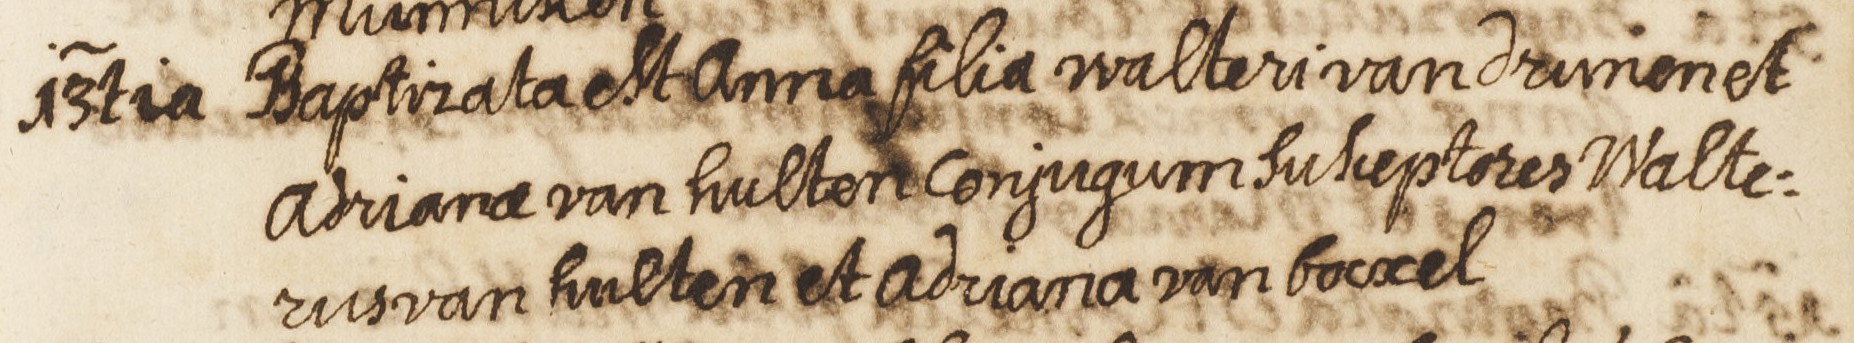 13tia Baptizata est Anna filia walteri van drunen et
Adrianæ van hulten Conjugum suseptores Walte:
rus van hulten et Adriana van bocxel